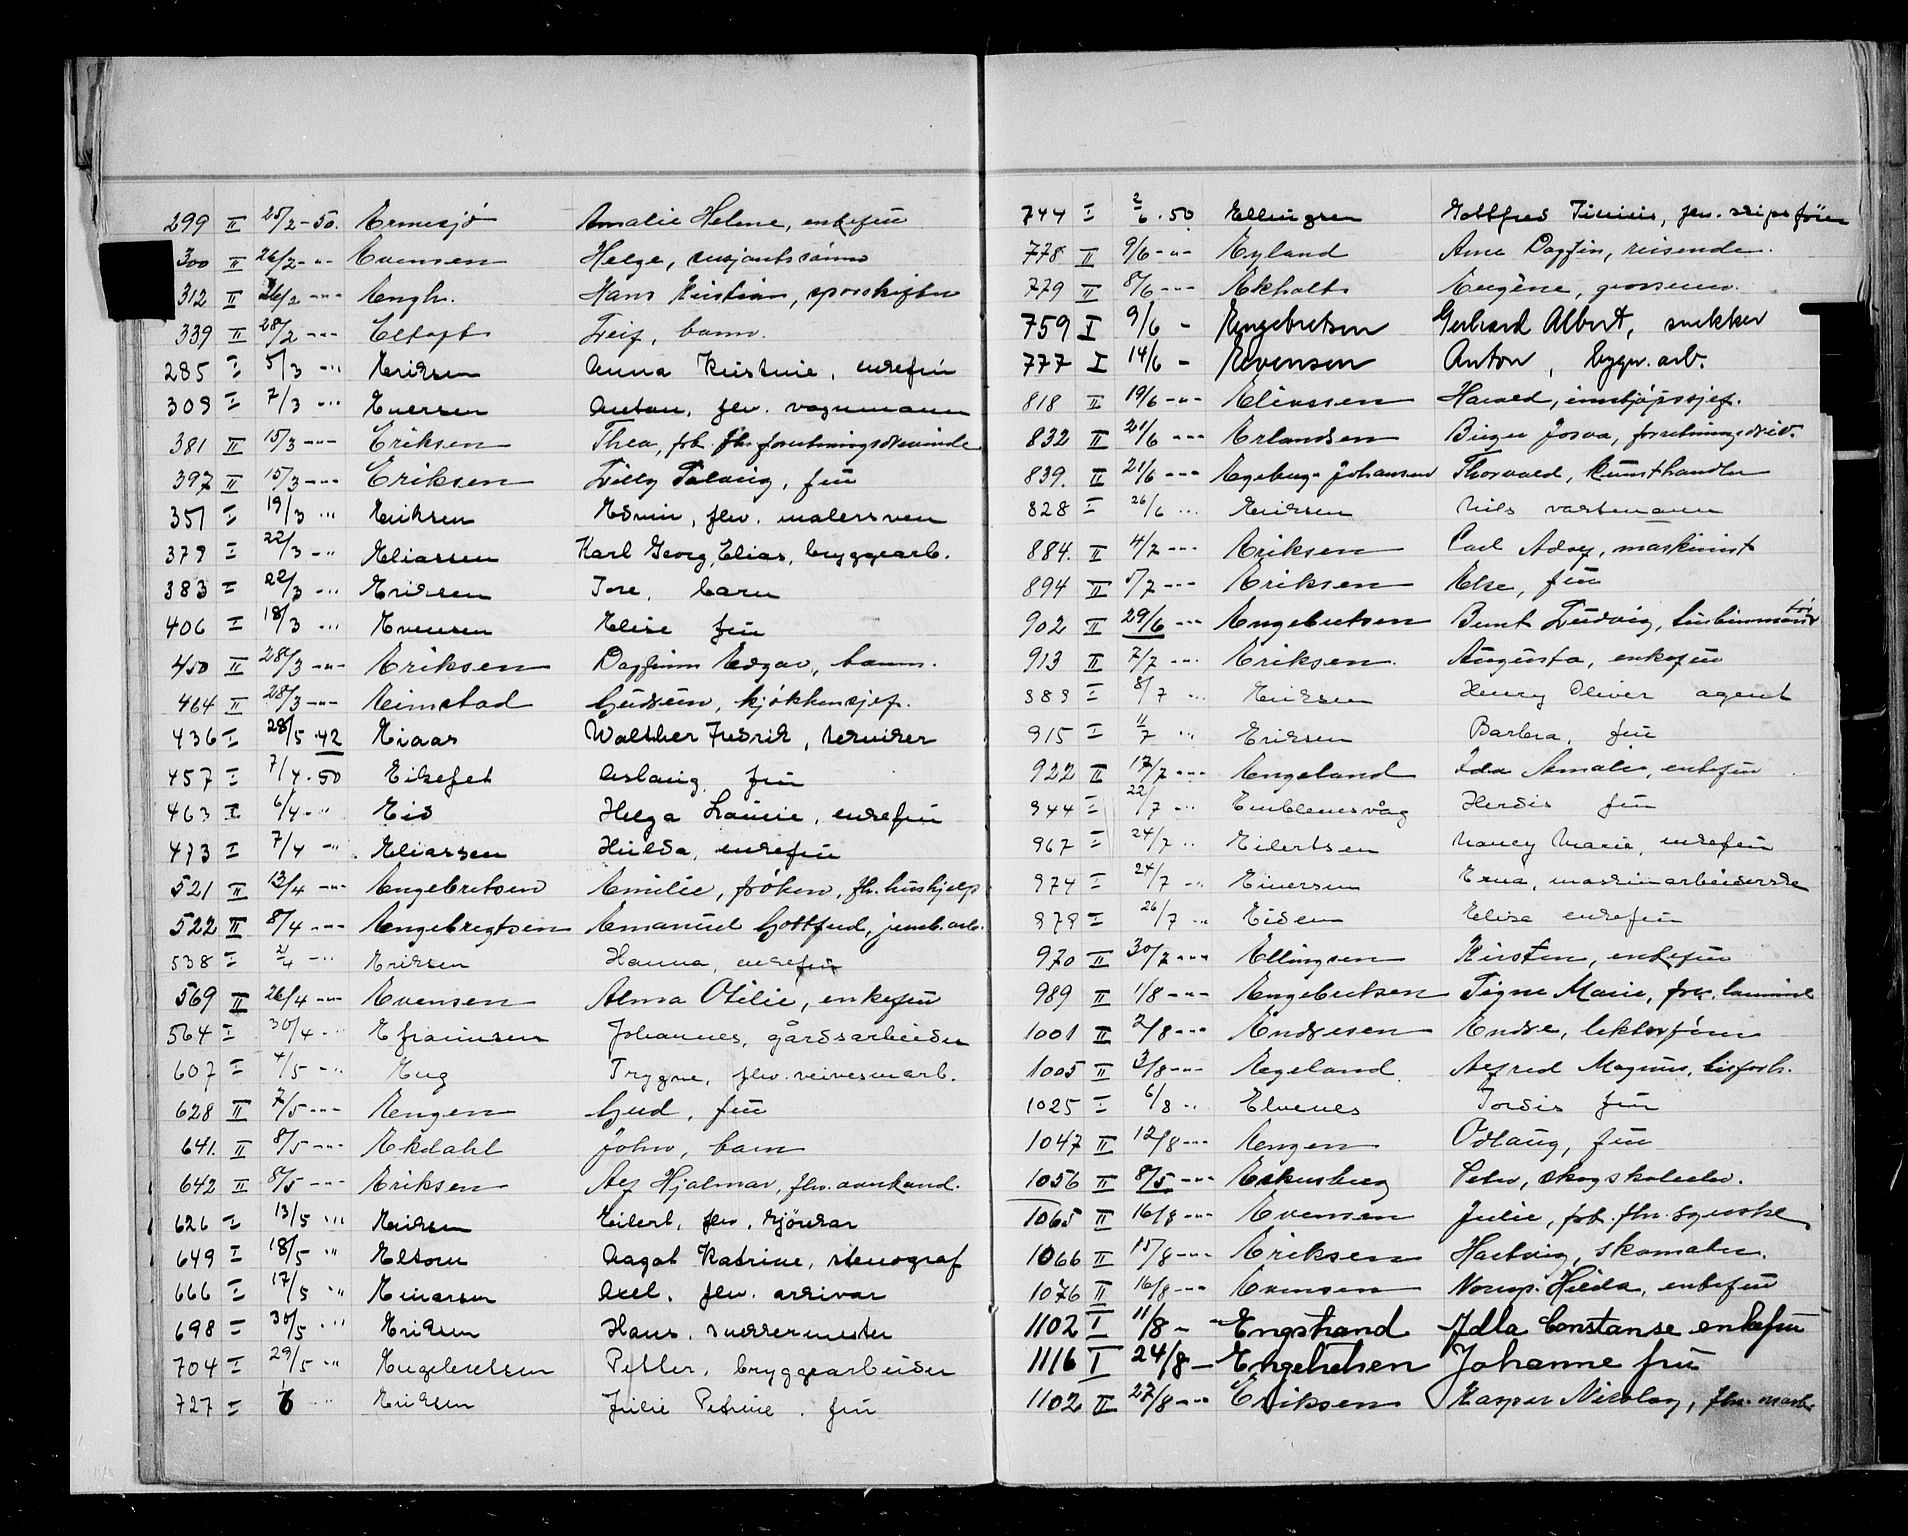 299 II 25/2-50. Ermesjö Amalie Helene, enkefru
300 II 26/2 -"- Evensen Helge, sersjantssønn
312 II 26/2 -"- Engh. Hans Kristian,
339 II 28/2 -"- Eltoft Leif, barn.
285 I 5/3 -"- Eriksen Anna Kristine, enkefru
309 I 7/3 -"- Iversen Anton, flv. vognmann
381 II 15/3 -"- Eriksen Thea, frk. fhv. forretningskvinde
397 II 15/3 -"- Eriksen Lilly Solveig, fru
351 I 19/3 -"- Eriksen Edvin, flv. malersven
379 I 22/3 -" Eliassen Karl Georg Elias, bryggearb.
383 I 22/3 -" Eriksen Tore, barn
406 I 18/3 -" Evensen Elise fru
450 II 28/3 -"- Eriksen Dagfinn Edgar, barn.
464 II 28/3 -"- Eimstad Gudrun, kjøkkensjef.
436 I 28/5 .42 Eiaas Walther Fredrik,
457 I 7/4.50 Eikefet Aslaug, fru
463 I 6/4 -" Eid Helga Lovise, enkefru
473 I 7/4 -" Eliassen Hulda, enkefru
521 II 13/4 -"- Engebretsen Emilie, frøken, fh. hushjelp
522 II 8/4 -"- Engebregtsen Emanuel Gottfred, jernb. arb.
538 I 2/4 -" Eriksen Hanna, enkefru
569 II 26/4 -"- Evensen Alma Otilie, enkefru
564 I 30/4 -" Efraimsen Johannes, gårdsarbeider
607 I 4/5 -" Eng Trygve, flv.
628 II 7/5 -"- Engen Gud, fru
641. II 8/5 -"- Ekdahl John, barn
642 II 8/5 -"- Eriksen Alf Hjalmar, fhv.
626 I 13/5 -" Eriksen Eilert, flv. sjömann
649 I 18/5 " Eltorn Aagot Katrine, stenograf
666 I 17/5 " Einarsen Axel, flv. arkivar
698 I 30/5 " Eriksen Hans, snekkermester
704 I 29/5 " Engebretsen Petter, bryggearbeider
727 I 6 " Eriksen Julie Petrine, fru
744 I 2/6.50 Ellingsen Gottfred flv. skipsfører
778 II 9/6 -"- Eyland Arne Dagfin, reisende.
779 II 8/6 -"- Ekholt Eugène, grosserer.
759 I 9/6 - Engebretsen Gerhard Albert, snekker
777 I 14/6 - Evensen Anton, bygn. arb.
818 II 19/6 -"- Eliassen Harald, innkjøpssjef.
832 II 21/6 -"- Erlandsen Birger Josva, forretningsdriv.
839. II 21/6 -"- Egeberg-Johansen Thorvald, kunsthandler
828 I 26/6 " Eriksen Nils vaktmann
884. II 4/7 -"- Eriksen Carl Adolf, maskinist
894 II 5/7 -"- Eriksen Else, fru
902 II 29/6 -"- Engebretsen Bernt Ludvig,
913 II 7/7 -"- Eriksen. Augusta, enkefru
889 I 8/7 " Eriksen Henry Oliver agent
915 I 11/7 " Eriksen Barbra, fru
922 II 17/7 -"- Engeland Ida Amalie, enkefru
944 I 22/7 -" Emblemsvåg Herdis fru
967 I 24/7 " Eilertsen Nancy Marie, enkefru
974 I 24/7 -" Einersen Erna, maskinarbeiderske
979 I 26/7 " Eidem Elise enkefru
970 II 30/7 -"- Ellingsen Kirsten, enkefru
989 II 1/8 -"- Engebretsen Signe Marie, frk.
1001 II 2/8 -"- Endresen Endre, lektor
1005 II 3/8 -"- Egeland. Alfred Magnus, disponb.
1025 I 6/8 -" Elvenes Tordis fru
1047 II 12/8 -"- Engen Odlaug, fru
1056 II 8/5 -"- Peter, skogskoleelev.
1065 II 16/8 -"- Evensen Julie, frk. fhv. syerske
1066 II 15/8 -"- Eriksen Hartvig, skomaker.
1076 II 16/8 -"- Evensen Norup. Hilda, enkefru
1102 I 11/8 - Engstrand Jdla Constanse enkefru
1116 I 24/8 - Engebretsen Johanne fru
1102 II 27/8 -"- Eriksen Kasper Nikolay, fhv.